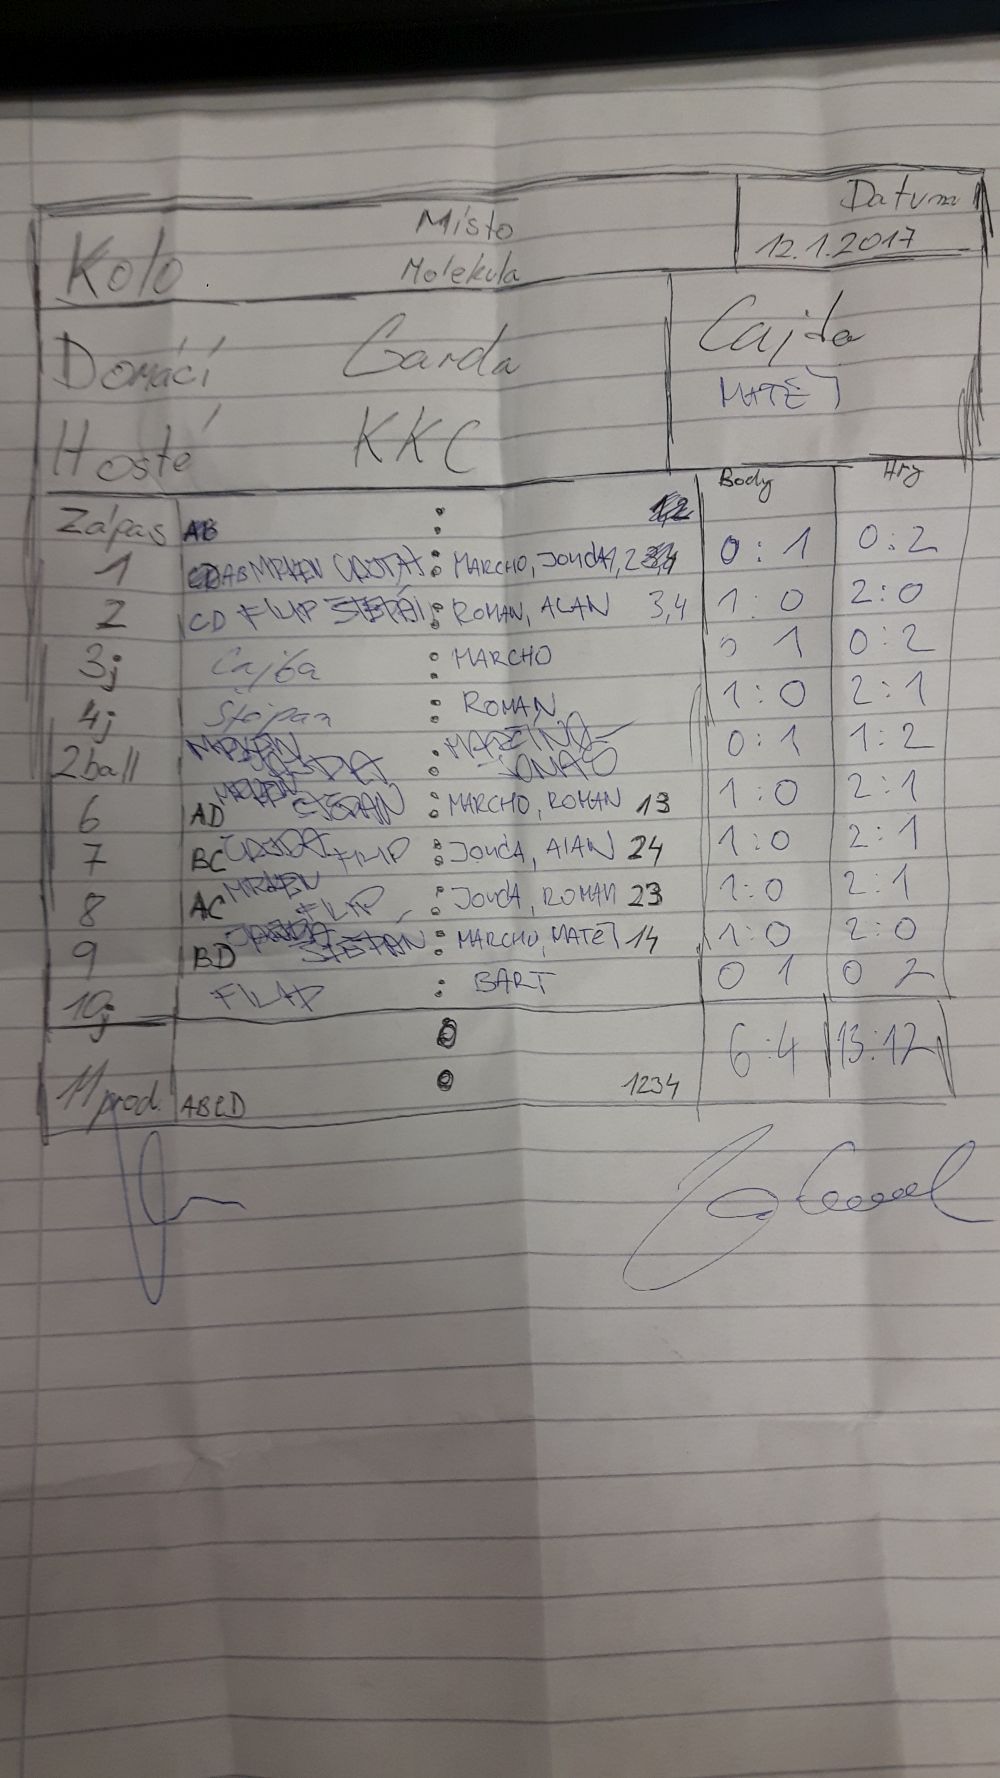 Kolo Místo Datum
Molekula 12.1.2017
Domácí Garda Cajda
MATĚJ
Hosté KKC
Body Hry
Zápas AB :
1 AB MRKEN : MARCHO, JOUDA 1,2 0:1 0:2
2 CD FILIP ŠTĚPÁN : ROMAN, ALAN 3,4 1:0 2:0
3j : MARCHO 0 1 0:2
4j Štěpán : ROMAN 1:0 2:1
2ball MRKEN : 0:1 1:2
6 AD MRKEN ŠTĚPÁN : MARCHO, ROMAN 13 1:0 2:1
7 BC FILIP : JOUDA, ALAN 24 1:0 2:1
8 AC MRKEN FILIP : JOUDA, ROMAN 23 1:0 2:1
9 BD ŠTĚPÁN : MARCHO, MATĚJ 14 1:0 2:0
10j FILIP : BART 0 1 0 2
6:4 13:12
11 prod. ABCD : 1234